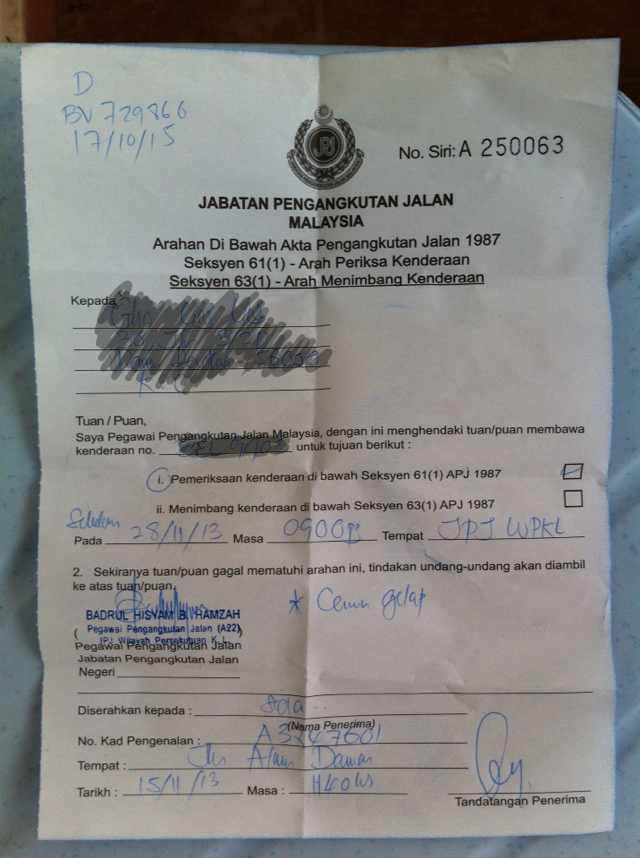 D
BV 729860
17/10/15
JPJ
No. Siri: A 250063
JABATAN PENGANGKUTAN JALAN
MALAYSIA
Arahan Di Bawah Akta Pengangkutan Jalan 1987
Seksyen 61(1) - Arah Periksa Kenderaan
Seksyen 63(1) - Arah Menimbang Kenderaan
Kepada
Tuan / Puan,
Saya Pegawai Pengangkutan Jalan Malaysia, dengan ini menghendaki tuan/puan membawa
kenderaan no. untuk tujuan berikut :
i. Pemeriksaan kenderaan di bawah Seksyen 61(1) APJ 1987
ii. Menimbang kenderaan di bawah Seksyen 63(1) APJ 1987
Sebelum
Pada 28/11/13 Masa 0900 Tempat JPJ WPKL
2. Sekiranya tuan/puan gagal mematuhi arahan ini, tindakan undang-undang akan diambil
ke atas tuan/puan.
* Cermin gelap
BADRUL HISYAM B. HAMZAH
( Pegawai Pengangkutan Jalan (A22)
JPJ Wilayah Persekutuan K.L.
Pegawai Pengangkutan Jalan
Jabatan Pengangkutan Jalan
Negeri
Diserahkan kepada :
(Nama Penerima)
No. Kad Pengenalan :
Tempat : Jln Damai
Tarikh : 15/11/13 Masa :
Tandatangan Penerima